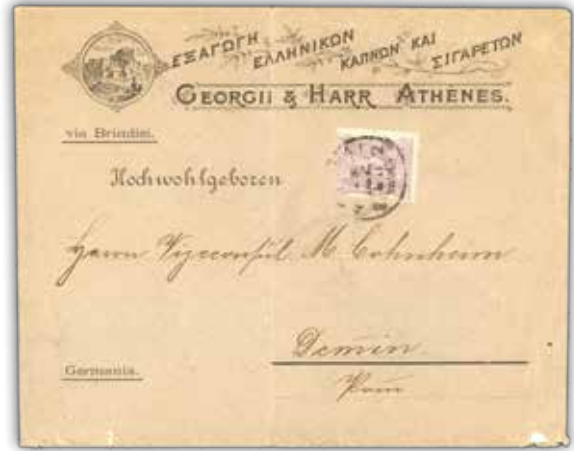 ΕΞΑΓΩΓΗ ΕΛΛΗΝΙΚΩΝ ΚΑΠΝΩΝ ΚΑΙ ΣΙΓΑΡΕΤΩΝ
GEORGII & HARR ATHÈNES.
via Brindisi.
Hochwohlgeboren
Herrn Vizeconsul M Cohnheim
Demin.
Germania.
Pom